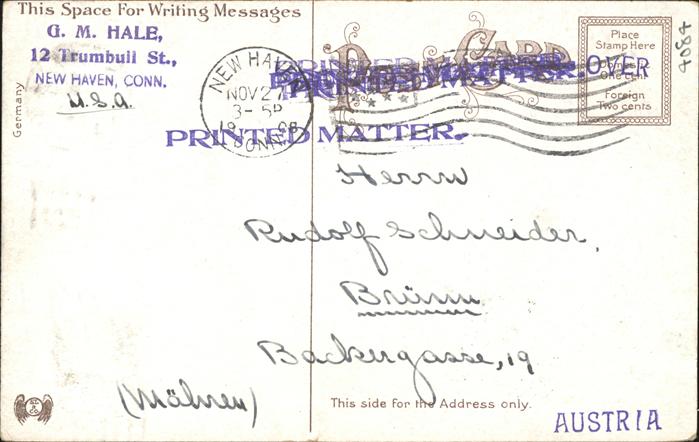 This Space For Writing Messages
G. M. HALE,
12 Trumbull St.,
NEW HAVEN, CONN.
U.S.A.
Germany
NEW HAVEN
NOV 27
3-
CONN.
POST CARD
PRINTED MATTER.
PRINTED MATTER.
OVER
PRINTED MATTER.
Place
Stamp Here
One cent
Foreign
Two cents
4684
Herrn
Rudolf Schneider,
Brünn
Backergasse, 19
(Mähren)
This side for the Address only.
AUSTRIA